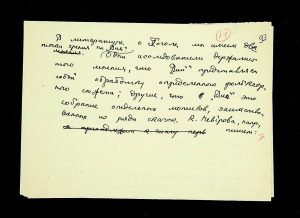 12
93
В литературе о Гоголе мы имеем две
точки зрения на "Вия"
Одни исследователи держались
того мнения, что "Вий" представляет
собой обработку определенного фольклор-
ного сюжета; другие, что в "Вие" это
собрание отдельных мотивов, заимство-
ванных из ряда сказок. К. Невирова, напр.,
пишет: